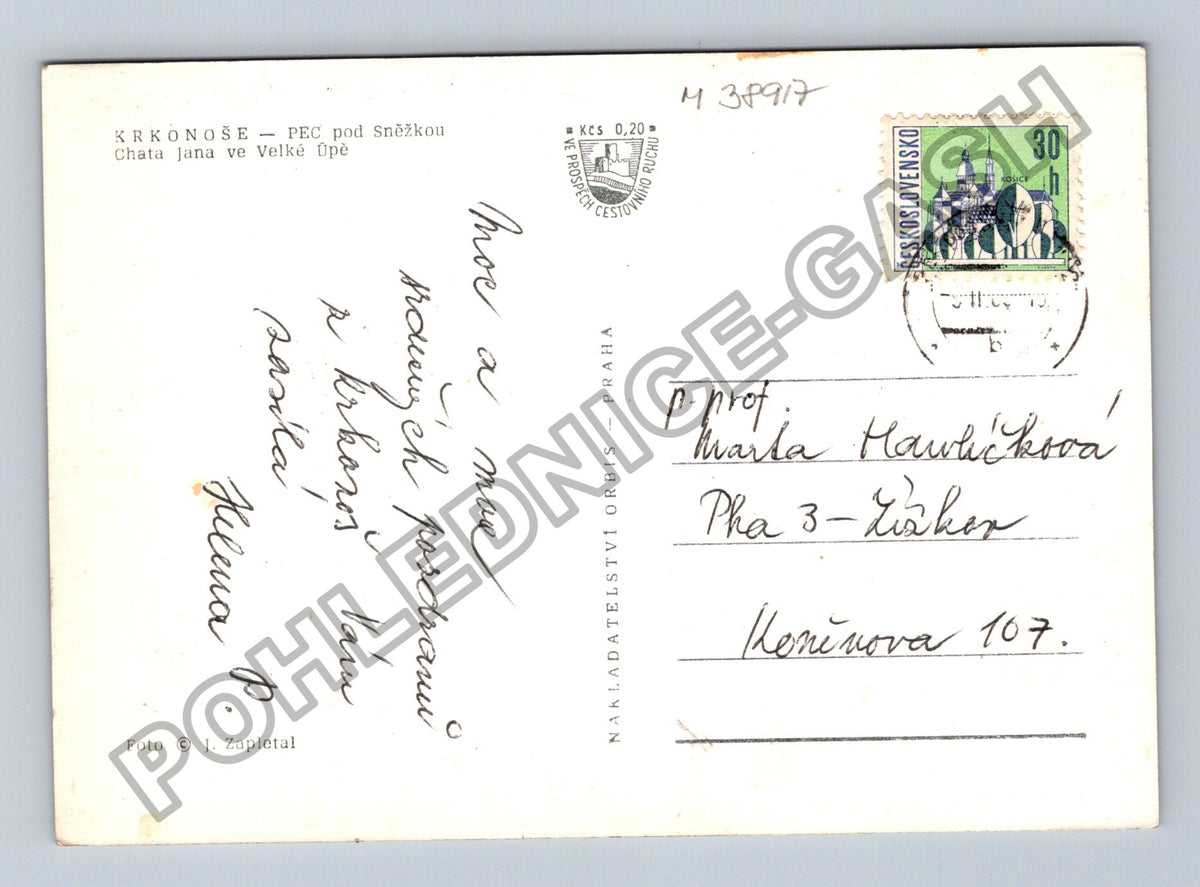 KRKONOŠE — PEC pod Sněžkou
Chata Jana ve Velké Úpě
M 3891/7
Kčs 0,20
VE PROSPĚCH CESTOVNÍHO RUCHU
ČESKOSLOVENSKO
30
h
KOŠICE
Moc a moc
srdečných pozdravů
z Krkonoš Vám
zasílá
Helena P.
NAKLADATELSTVÍ ORBIS — PRAHA
p. prof.
Marta Havlíčková
Pha 3 – Žižkov
Koněvova 107.
Foto © J. Zapletal
POHLEDNICE-GASH